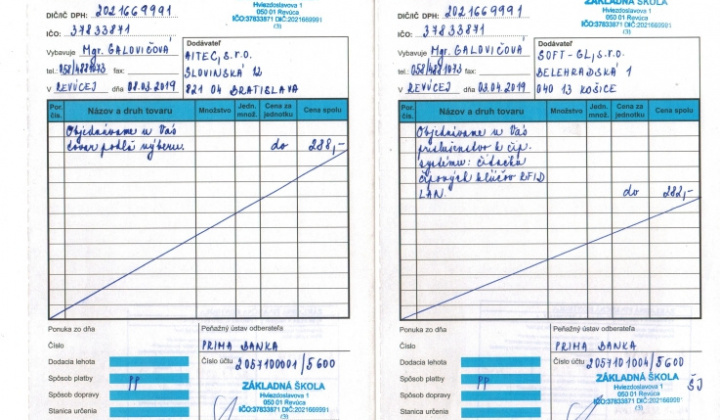 DIČ/IČ DPH: 2021669991
IČO: 37833871
Hviezdoslavova 1
050 01 Revúca
IČO:37833871 DIČ:2021669991
(3)
Vybavuje Mgr. GALOVIČOVÁ
tel. 058/4881073 fax:
V REVÚCEJ dňa 08.03.2019
Dodávateľ
AITEC, s.r.o.
SLOVINSKÁ 12
821 04 BRATISLAVA
Por. čís. Názov a druh tovaru Množstvo Jedn. množ. Cena za jednotku Cena spolu
Objednávame u Vás
tovar podľa výberu. do 288,-
Ponuka zo dňa
Číslo
Dodacia lehota
Spôsob platby PP
Spôsob dopravy
Stanica určenia
Peňažný ústav odberateľa
PRIMA BANKA
Číslo účtu 2057100001/5600
ZÁKLADNÁ ŠKOLA
Hviezdoslavova 1
050 01 Revúca
IČO:37833871 DIČ:2021669991
(3)
DIČ/IČ DPH: 2021669991
IČO: 37833871
ZÁKLADNÁ ŠKOLA
Hviezdoslavova 1
050 01 Revúca
IČO:37833871 DIČ:2021669991
(3)
Vybavuje Mgr. GALOVIČOVÁ
tel. 058/4881073 fax:
V REVÚCEJ dňa 03.04.2019
Dodávateľ
SOFT-GL, s.r.o.
BELEHRADSKÁ 1
040 13 KOŠICE
Por. čís. Názov a druh tovaru Množstvo Jedn. množ. Cena za jednotku Cena spolu
Objednávame u Vás
príslušenstvo k čip.
systému: čítačka
čipových kľúčov RFID
LAN. do 282,-
Ponuka zo dňa
Číslo
Dodacia lehota
Spôsob platby PP
Spôsob dopravy
Stanica určenia
Peňažný ústav odberateľa
PRIMA BANKA
Číslo účtu 2057101004/5600
ZÁKLADNÁ ŠKOLA ŠJ
Hviezdoslavova 1
050 01 Revúca
IČO:37833871 DIČ:2021669991
(3)